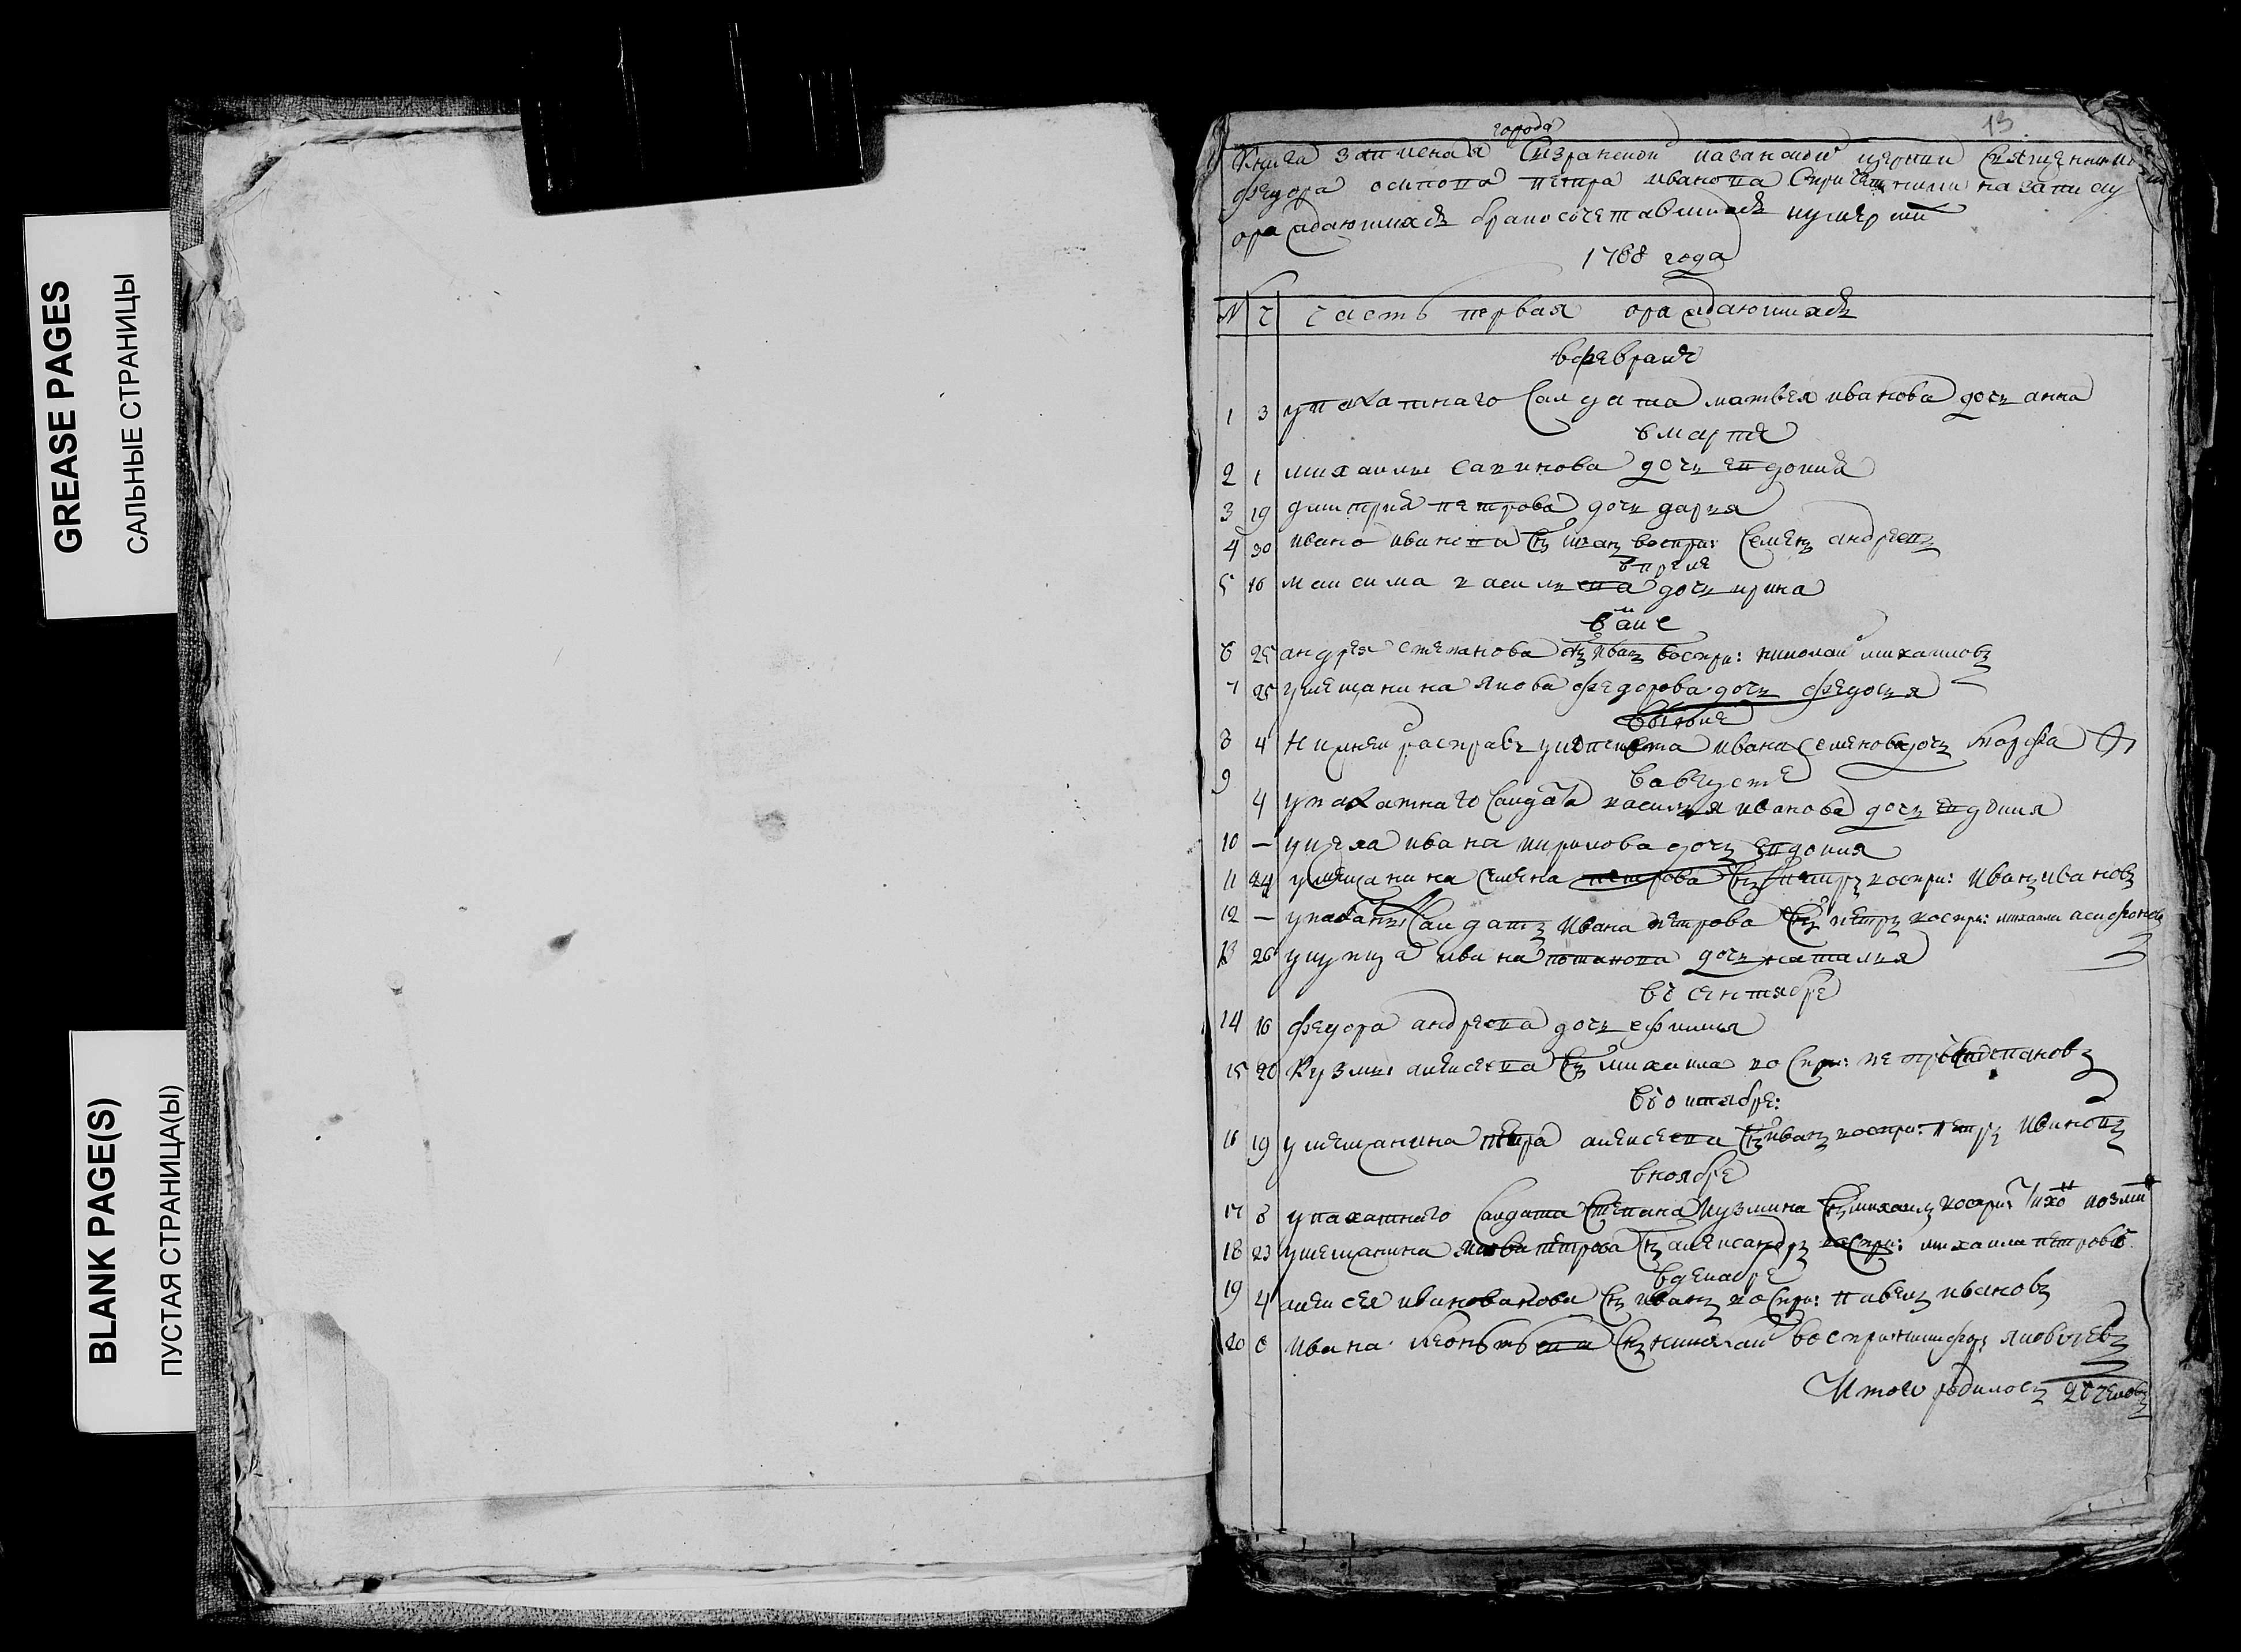 GREASE PAGES
САЛЬНЫЕ СТРАНИЦЫ
BLANK PAGE(S)
ПУСТАЯ СТРАНИЦА(Ы)
13
города
Книга записная Сызранской казанской церкви священника
Федора осипова петра иванова спричетники назаписку
ораждающихся бракосочетавшихся иумерши
1788 года
N Ч часть первая ораждающихся
вфеврале
1 3 упахатнаго Салдата матвея иванова дочь анна
вмарте
2 1 михаилы дочь евдокия
3 19 дмитрия петрова дочь дарья
4 30 ивана иванова сн иван воспри: Семенъ андреевъ
впреле
5 16 максима васильева дочь ирина
вмаие
6 25 андрея степанова снъ иванъ воспри: николай михаиловъ
7 25 умещанина якова федорова дочь федосья
виюне
8 4 Нижней расправы ивана Семенова дочь марфа
вавгусте
9 4 упахатнаго Салдата василья иванова дочь евдокия
10 — ивана кирилова дочь евдокия
11 24 умещанина семена петрова снъ петръ воспри: иванъ ивановъ
12 — Салдатъ ивана петрова снъ петръ воспри: михаила
13 26 укупца ивана потапова дочь наталья
всентябре
14 16 федора андреева дочь ефимия
15 20 Кузмы алексеева снъ михаила воспри:
воктябре:
16 19 умещанина петра алексеева снъ иванъ воспри: петръ ивановъ
вноябре
17 8 упахатнаго Салдата Степана кузмина снъ михаилъ воспри:
18 23 умещанина петрова снъ александръ воспри: михаила петровъ
вдекабре
19 4 алексея снъ иванъ воспри: павелъ ивановъ
20 6 ивана снъ николай воспри: никифоръ яковлевъ
Итого родилось 20 человъ